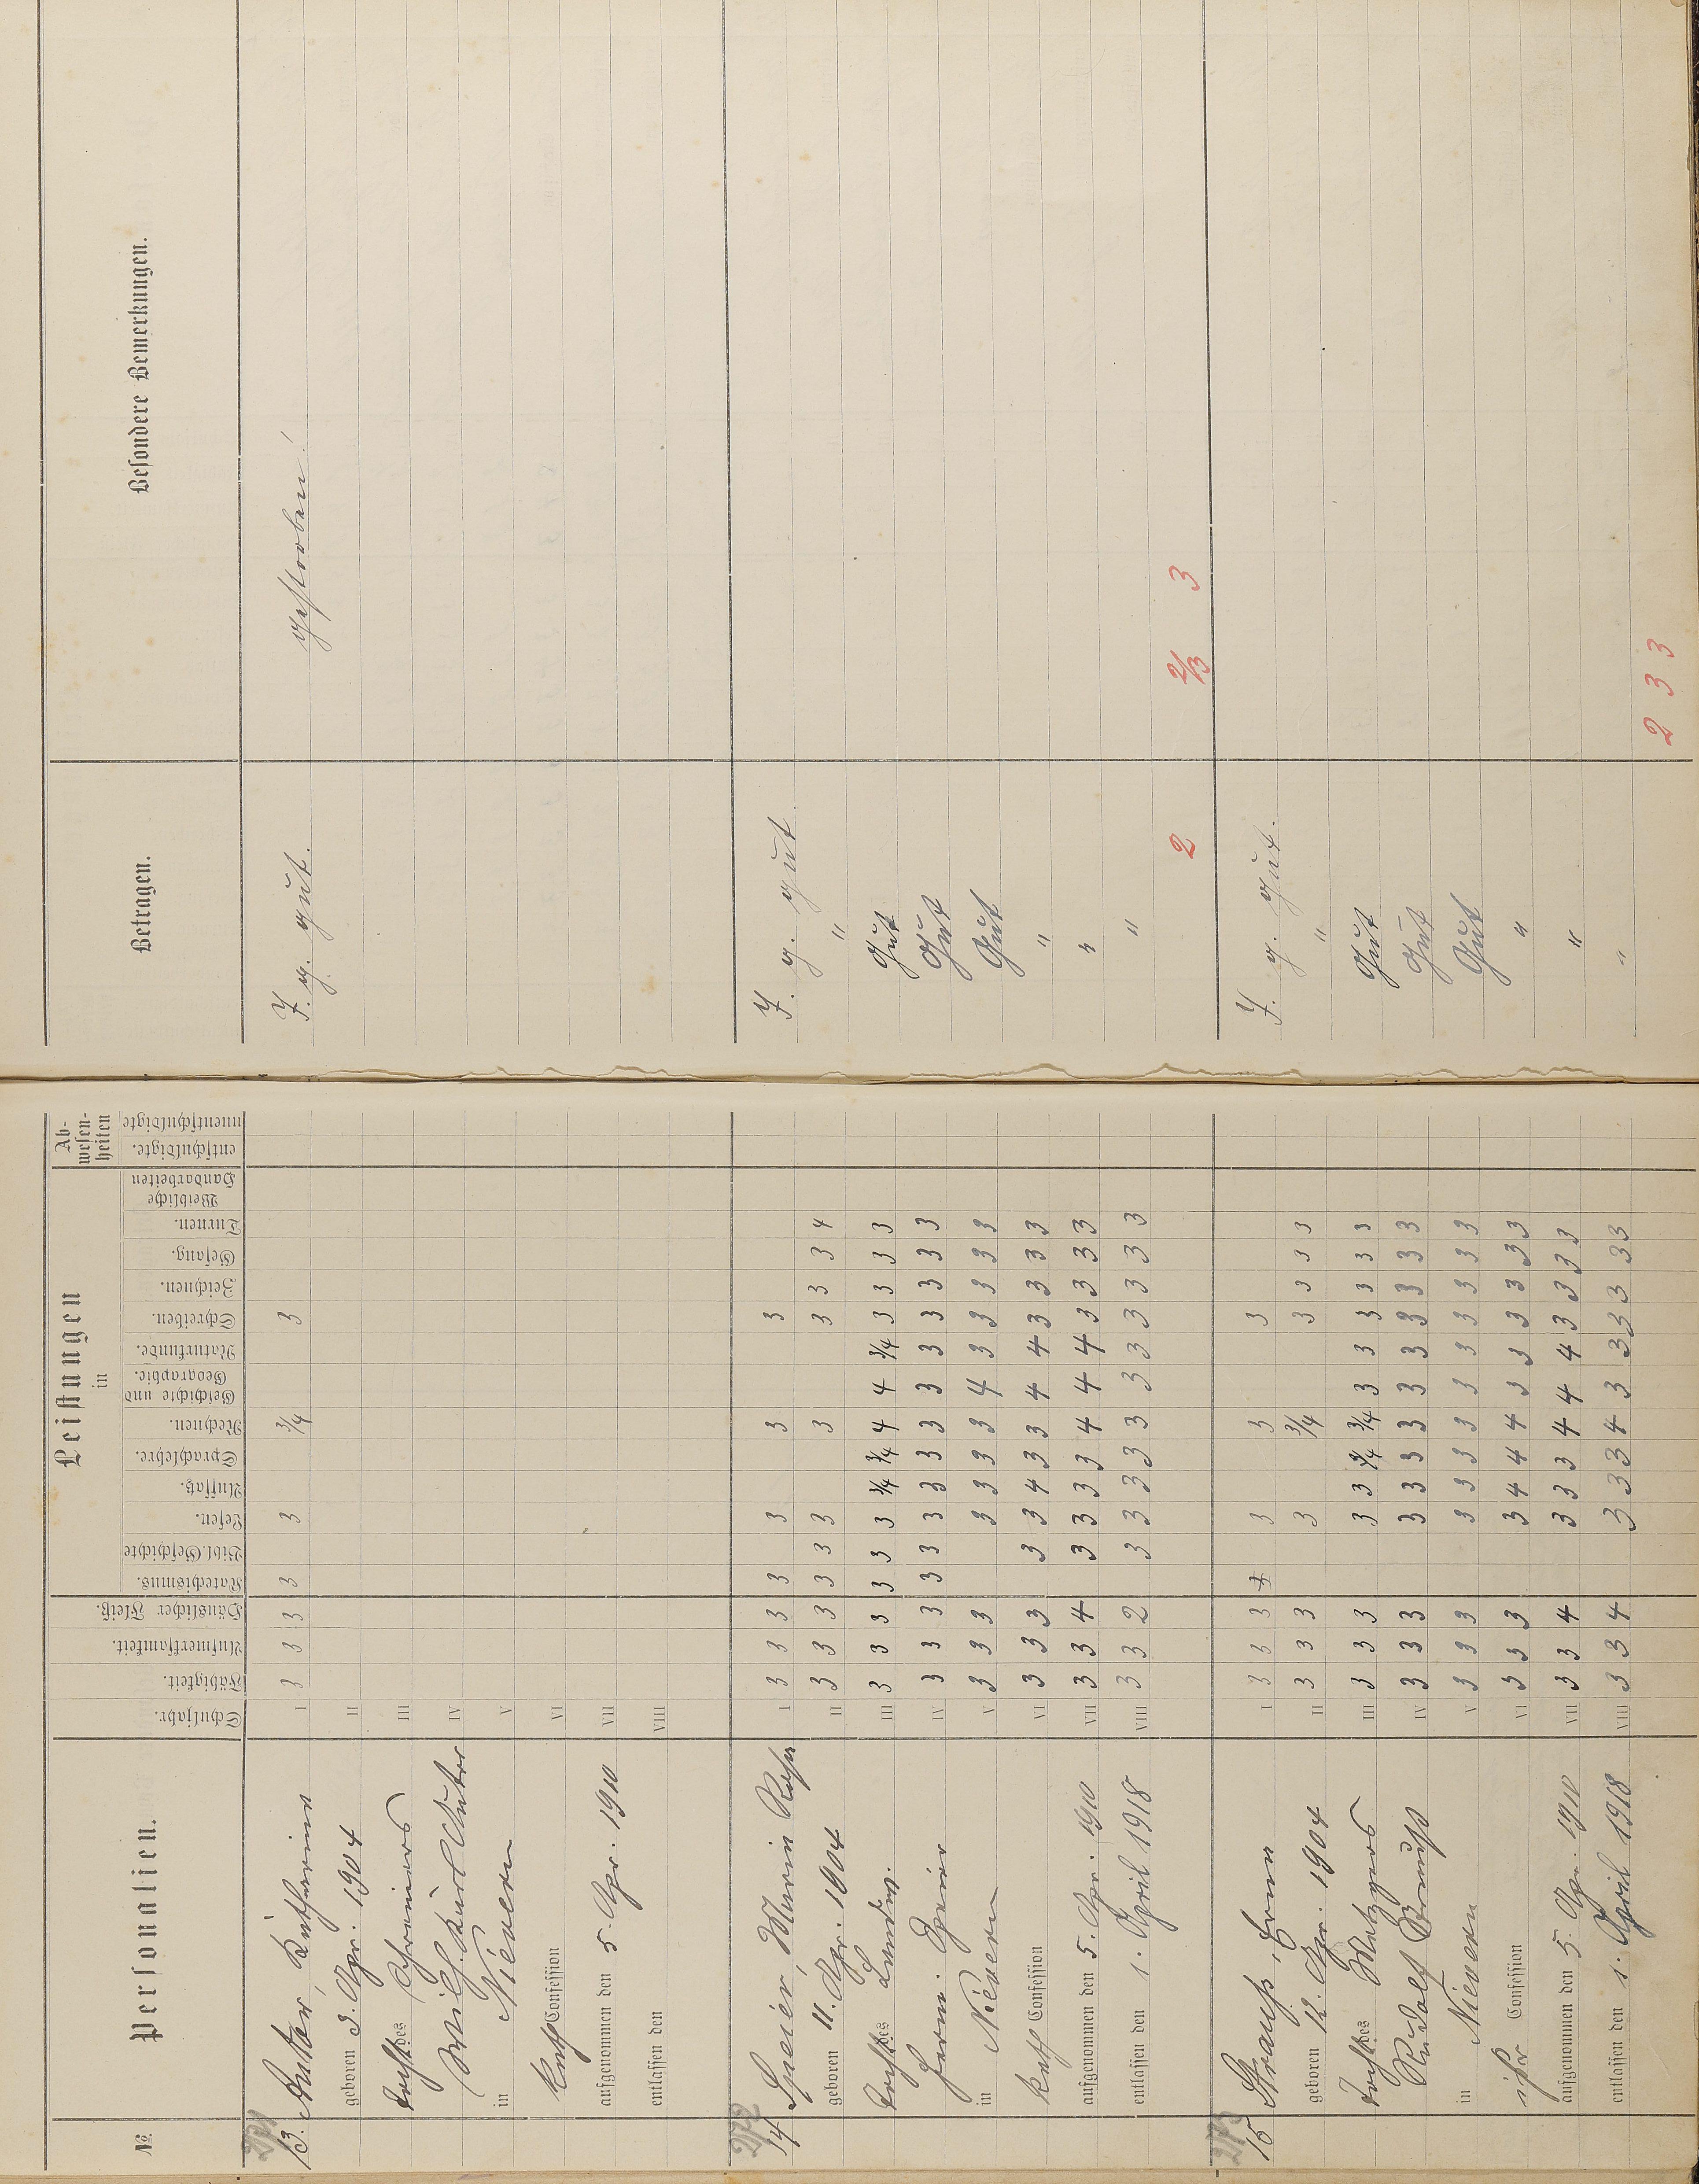 №
Personalien.
Schuljahr.
Fähigkeit.
Aufmerksamkeit.
Häuslicher Fleiß.
Leistungen
in
Katechismus.
Bibl. Geschichte
Lesen.
Aufsatz.
Sprachlehre.
Rechnen.
Geschichte und
Geographie.
Naturkunde.
Schreiben.
Zeichnen.
Gesang.
Turnen.
Weibliche
Handarbeiten
Ab-
wesen-
heiten
entschuldigte.
unentschuldigte
Betragen.
Besondere Bemerkungen.
2171
13. Katharina I 3 3 3 3 3 3/4 3 I. g. gut. gestorben!
geboren 3. Apr. 1904 II
Tocht. des Schreiners III
Wilh. Karl IV
in Nievern V
Kath Confession VI
aufgenommen den 5. Apr. 1910 VII
entlassen den VIII
2172
14 Speier, Maria I 3 3 3 3 3 3 3 I. g. gut
geboren 11. Apr. 1904 II 3 3 3 3 3 3 3 3 3 3 4 "
Tocht des Landw. III 3 3 3 3 3 3 3/4 3/4 4 4 3/4 3 3 3 3 Gut
Herm. Speier IV 3 3 3 3 3 3 3 3 3 3 3 3 3 3 3 Gut
in Nievern V 3 3 3 3 3 3 3 4 3 3 3 3 3 Gut
Kath Confession VI 3 3 3 3 3 4 3 3 4 4 3 3 3 3 "
aufgenommen den 5. Apr. 1910 VII 3 3 4 3 3 3 3 4 4 4 3 3 3 3 "
entlassen den 1. April 1918 VIII 3 3 2 3 3 3 3 3 3 3 3 3 3 3 "
2 2/3 3
2173
15 Strauß, Erna I 3 3 3 3 3 3 I. g. gut.
geboren 12. Apr. 1904 II 3 3 3 3 3/4 3 3 3 3 "
Tocht des Metzgers III 3 3 3 3 3 3/4 3/4 3 3 3 3 3 3 Gut
Rudolf Strauß IV 3 3 3 3 3 3 3 3 3 3 3 3 3 Gut
in Nievern V 3 3 3 3 3 3 3 3 3 3 3 3 3 Gut
isr Confession VI 3 3 3 3 4 4 4 3 3 3 3 3 3 "
aufgenommen den 5. Apr. 1910 VII 3 3 4 3 3 3 4 4 4 3 3 3 3 "
entlassen den 1. April 1918 VIII 3 3 4 3 3 3 4 3 3 3 3 3 3 "
2 3 3